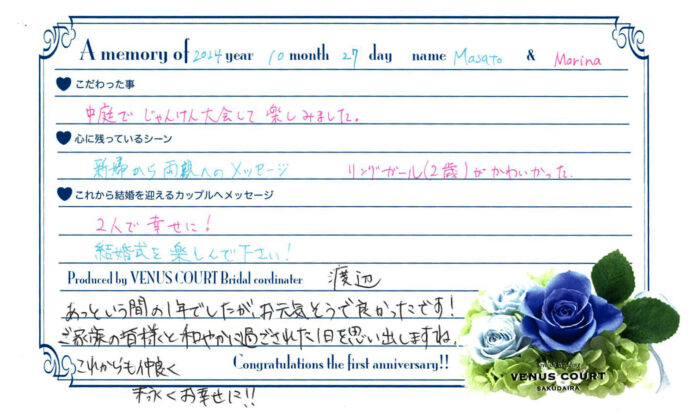 A memory of 2024 year 10 month 27 day name Masato & Marina
こだわった事
中庭で じゃんけん大会して 楽しみました。
心に残っているシーン
新婦から両親へのメッセージ リングガール(2歳)がかわいかった.
これから結婚を迎えるカップルへメッセージ
2人で幸せに!
結婚式を楽しんで下さい!
Produced by VENUS COURT Bridal cordinater 渡辺
あっという間の1年でしたが、お元気そうで良かったです!
ご家族の皆様と和やかに過ごされた1日を思い出しますね.
これからも仲良く
Congratulations the first anniversary!!
末永くお幸せに!!
VENUS COURT
SAKUDAIRA